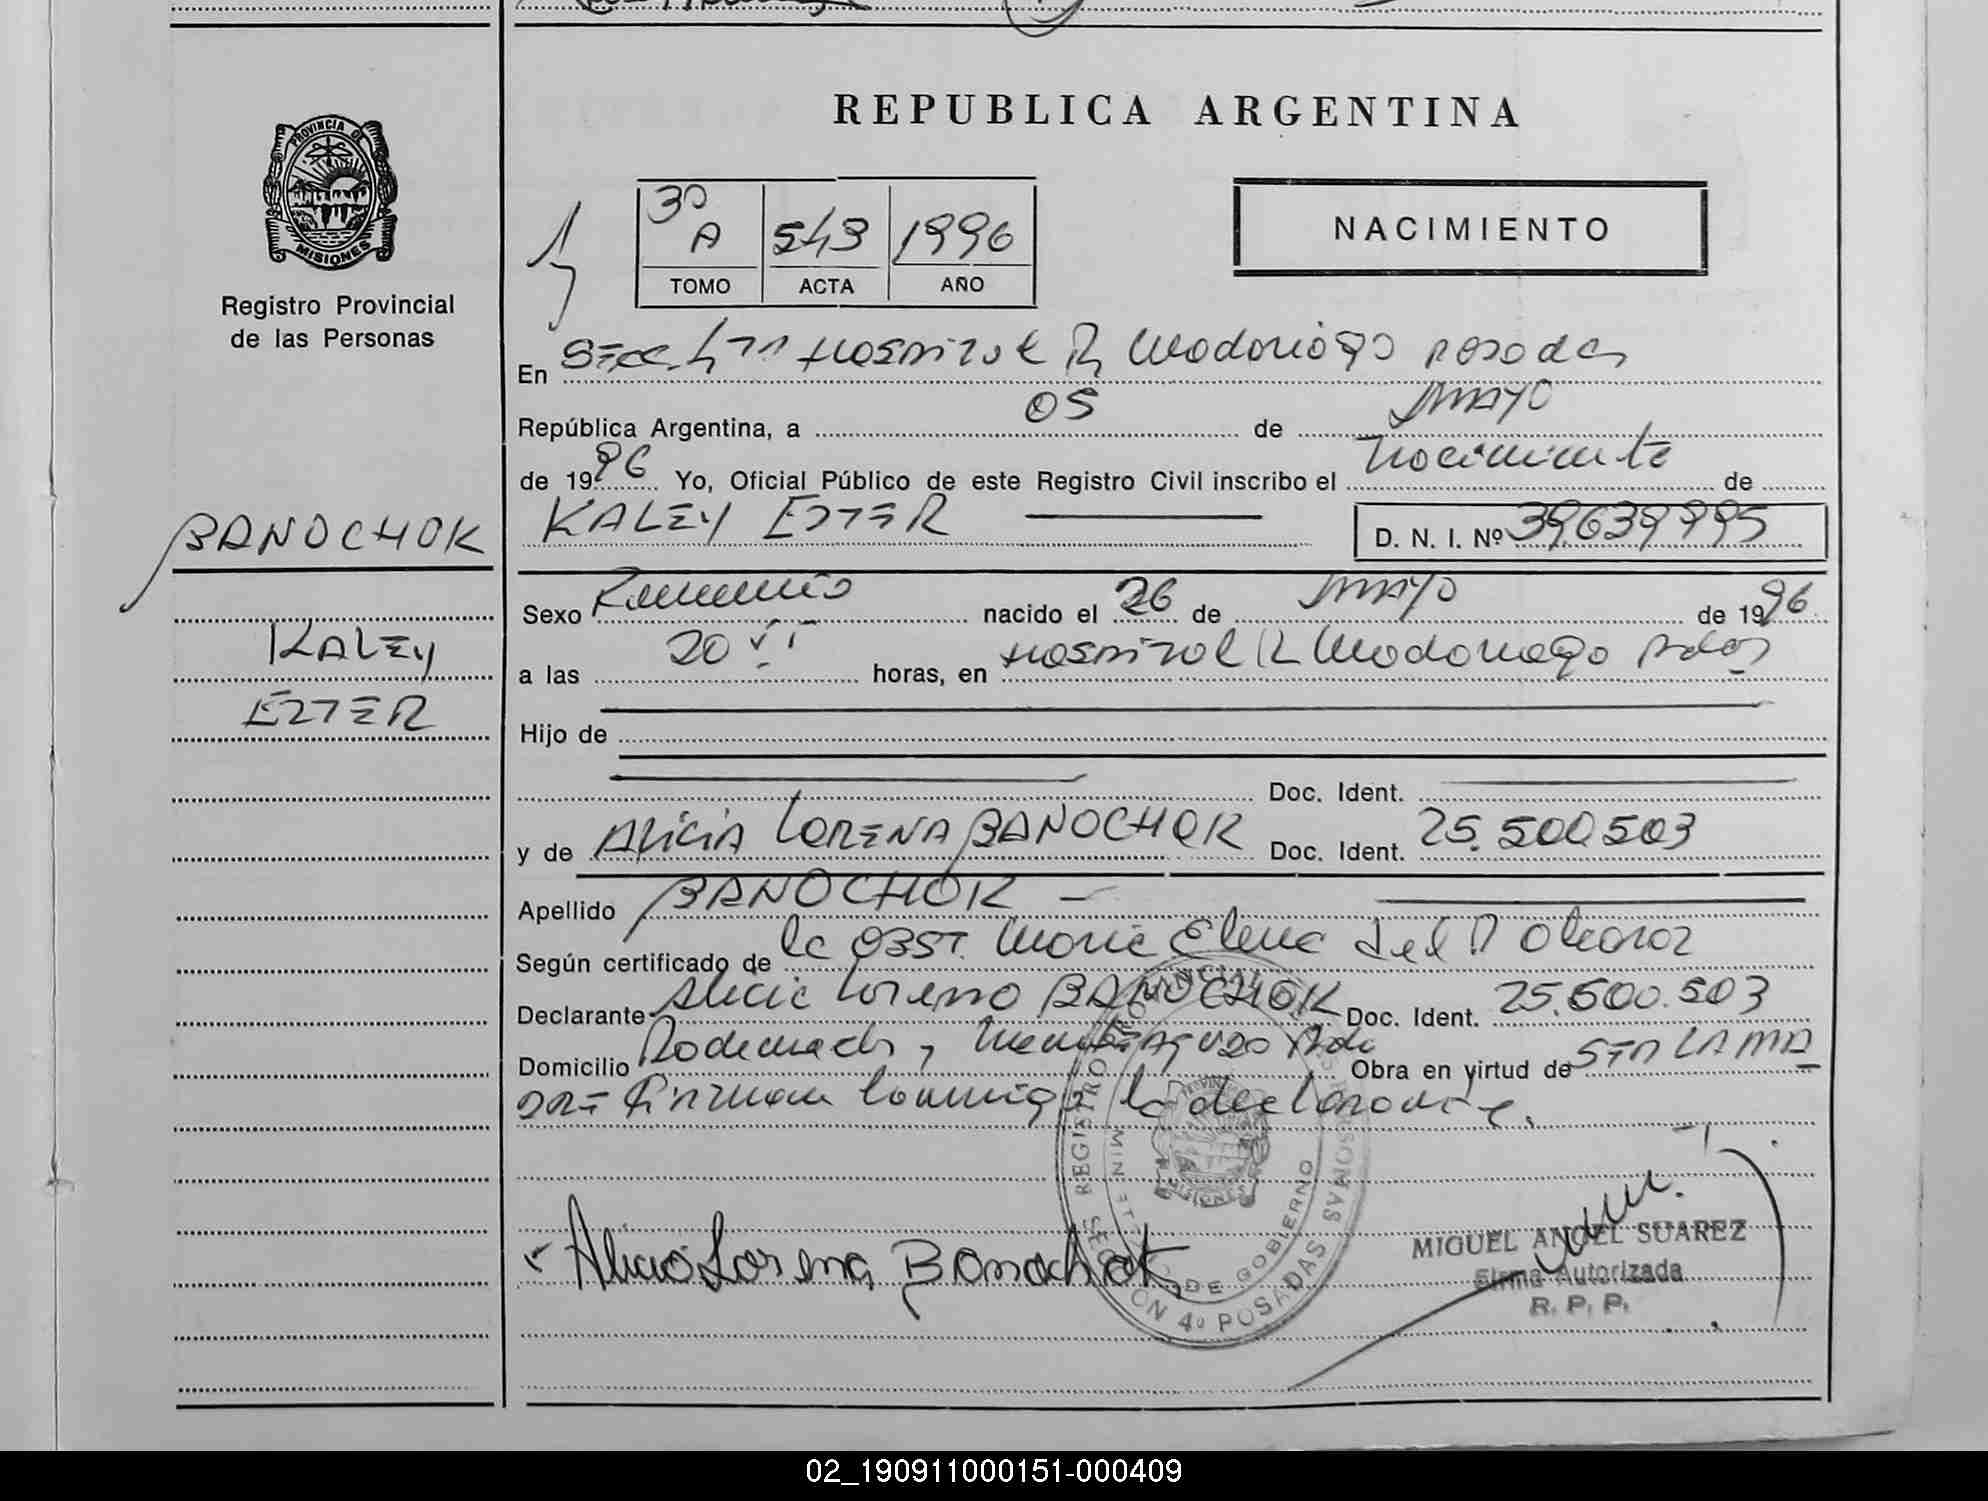 REPUBLICA ARGENTINA
PROVINCIA DE
MISIONES
Registro Provincial
de las Personas
3º
A 543 1996
TOMO ACTA AÑO
NACIMIENTO
En Secc 4ta Hospital R Madariaga Posadas
República Argentina, a 05 de MAYO
de 1996 Yo, Oficial Público de este Registro Civil inscribo el nacimiento de
BANOCHOK
KALEY
ESTER
KALEY ESTER D. N. I. Nº 39639995
Sexo Femenino nacido el 26 de MAYO de 1996
a las 20 horas, en Hospital R Madariaga Pdas
Hijo de
Doc. Ident.
y de ALICIA LORENA BANOCHOK Doc. Ident. 25.500503
Apellido BANOCHOK
Según certificado de la OBST. Maria Elena del
Declarante Alicia Lorena BANOCHOK Doc. Ident. 25.500.503
Domicilio Obra en virtud de STA LA MA
DRE Firman conmigo la declarante.
REGISTRO PROVINCIAL PERSONAS
SECCION 4º POSADAS
DE GOBIERNO
MISIONES
Alicia Lorena Banochok
MIGUEL ANGEL SUAREZ
Firma Autorizada
R. P. P.
02_190911000151-000409